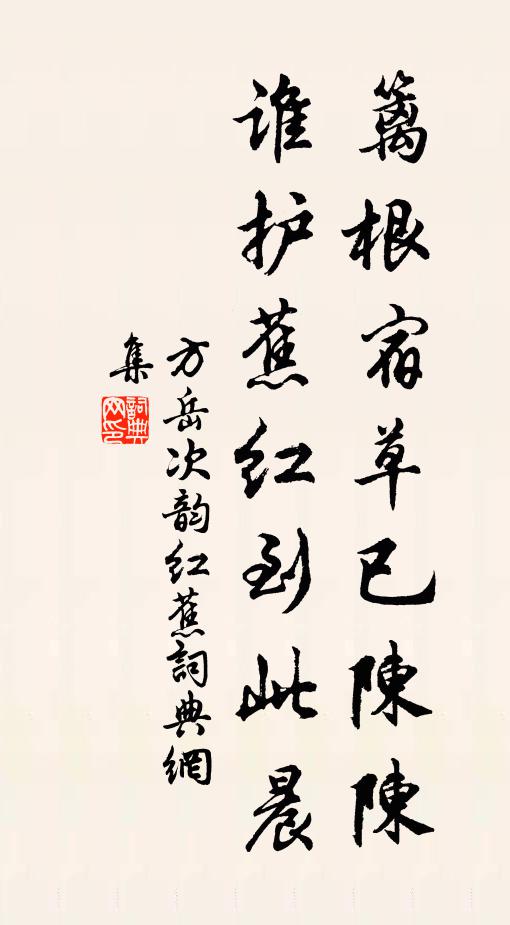 篱根宿草已陳陳
谁护蕉红到此晨
方岳次韵红蕉詞典網
集
詞典网印